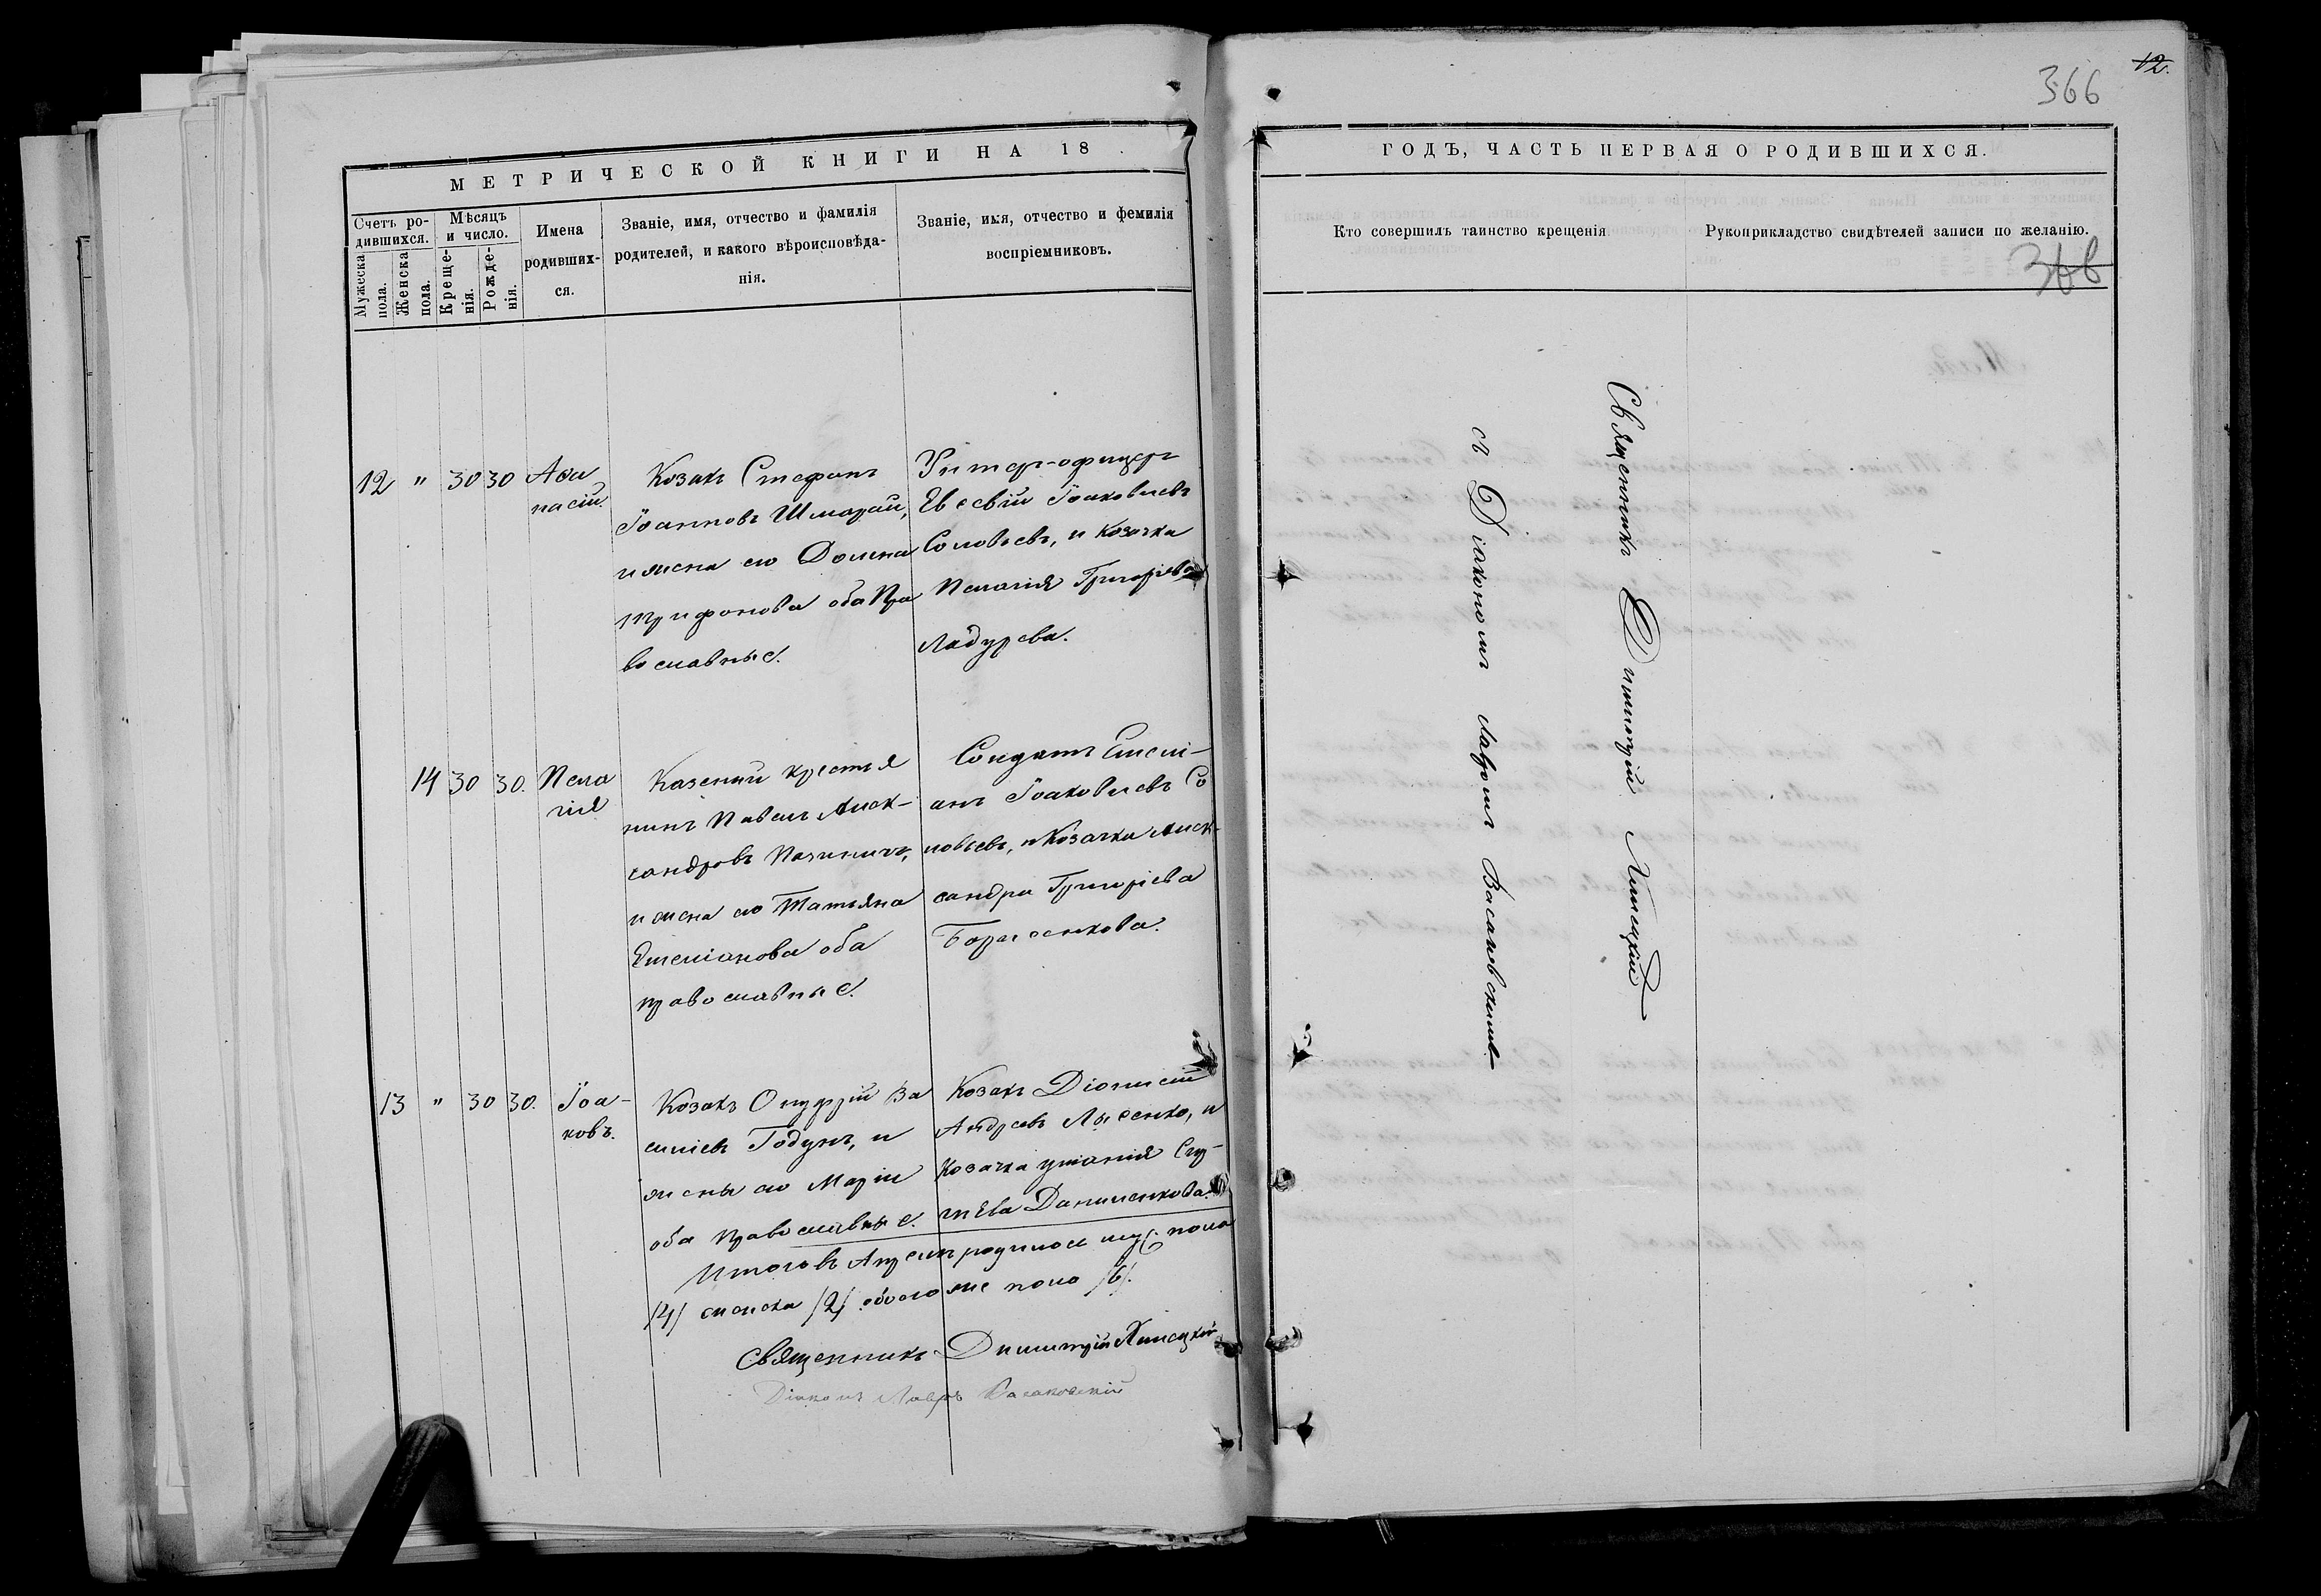 366
12.
МЕТРИЧЕСКОЙ КНИГИ НА 18
ГОДЪ, ЧАСТЬ ПЕРВАЯ О РОДИВШИХСЯ.
Счетъ ро-
дившихся.
Мужеска
пола.
Женска
пола.
Мѣсяцъ
и число.
Креще-
нія.
Рожде-
нія.
Имена
родивших-
ся.
Званіе, имя, отчество и фамилія
родителей, и какого вѣроисповѣда-
нія.
Званіе, имя, отчество и фемилія
воспріемниковъ.
Кто совершилъ таинство крещенія
Рукоприкладство свидѣтелей записи по желанію.
366
12 " 30 30
Аѳа
насій.
Козакъ Стефанъ
Іоанновъ Шмарай,
и жена его Домна
Трифонова оба Пра
вославные.
Унтер-офицеръ
Евсевій Іоаковлевъ
Соловьевъ, и козачка
Пелагія Григорьева
Ладурева.
14 30 30.
Пела
гія
Казенный крестья
нинъ Павелъ Алек-
сандровъ
и жена его Татьяна
Емеліанова оба
православные.
Солдатъ Емелі-
анъ Іоаковлевъ Со
ловьевъ, и Козачка Алек-
сандра Григоріева
13 " 30 30.
Іоа-
ковъ.
Козакъ Онуфрій Ва
силіевъ Годунъ, и
жены его Марія
оба православные.
Козакъ Діонисій
Андреевъ Лысенко, и
Козачка
Даниленкова.
Итого въ Апрелѣ родилось муж. пола
/4/ женска /2/ обоего же пола /6/.
Священникъ Димитрій
Діаконъ Лавръ
Священникъ Димитрій
съ Діакономъ Лавромъ